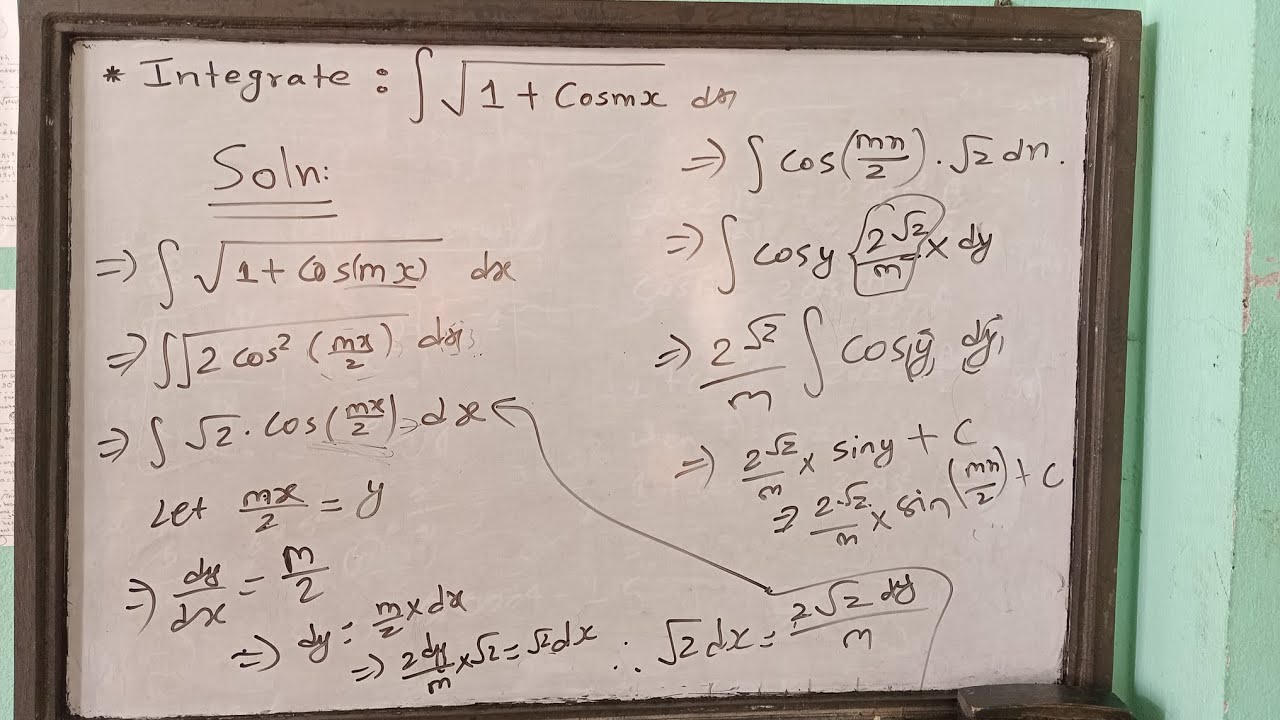 * Integrate : ∫ √(1 + Cosmx) dx
Soln:
⇒ ∫ √(1 + Cos(mx)) dx
⇒ ∫ √(2 cos² (mx/2)) dx
⇒ ∫ √2 · cos(mx/2) · dx
Let mx/2 = y
⇒ dy/dx = m/2
⇒ dy = m/2 × dx
⇒ 2dy/m × √2 = √2 dx
∴ √2 dx = 2√2 dy/m
⇒ ∫ cos(mx/2) · √2 dx.
⇒ ∫ cosy 2√2/m × dy
⇒ 2√2/m ∫ cosy dy
⇒ 2√2/m × siny + C
⇒ 2√2/m × sin(mx/2) + C